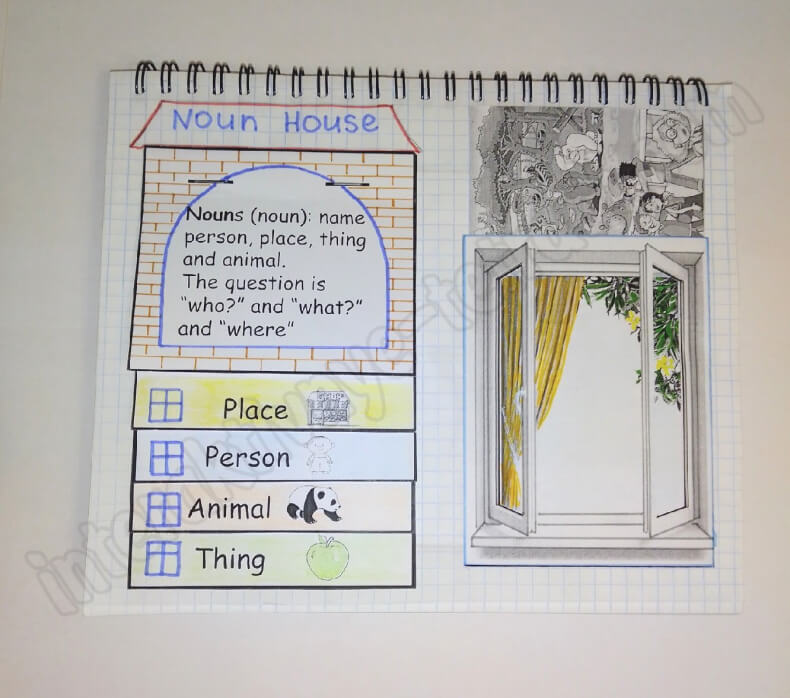 Noun House
Nouns (noun): name
person, place, thing
and animal.
The question is
"who?" and "what?"
and "where"
Place
Person
Animal
Thing